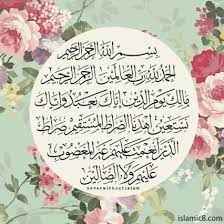 بسم الله الرحمن الرحيم
الحمد لله رب العالمين الرحمن الرحيم
مالك يوم الدين إياك نعبد وإياك
نستعين اهدنا الصراط المستقيم صراط
الذين أنعمت عليهم غير المغضوب
عليهم ولا الضالين
neverwithoutislam
islamic8.com